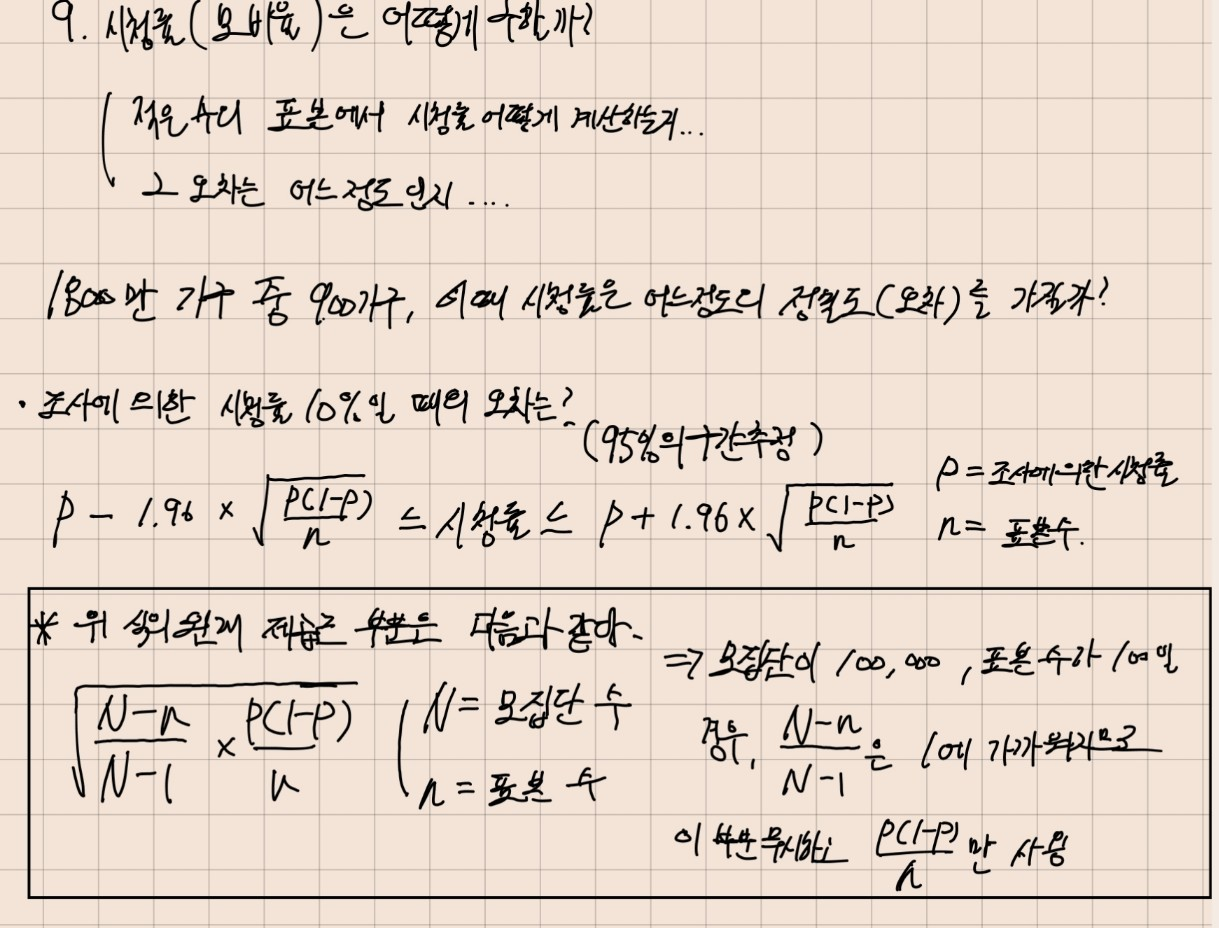 9. 시청률(모비율)은 어떻게 구할까?
적은 수의 표본에서 시청률 어떻게 계산하는지...
그 오차는 어느정도인지....
1800만 가구 중 900가구, 이때 시청률은 어느정도의 정밀도(오차)를 가질까?
· 조사에 의한 시청률 10%일 때의 오차는?
(95%의 구간추정)
P - 1.96 × √(P(1-P)/n) ≤ 시청률 ≤ P + 1.96 × √(P(1-P)/n)
P = 조사에의한 시청률
n = 표본수.
* 위 식의 원래 제곱근 부분은 다음과 같다.
√((N-n)/(N-1) × P(1-P)/n)
N = 모집단 수
n = 표본 수
⇒ 모집단이 100,000, 표본 수가 100일
경우, (N-n)/(N-1)은 1에 가까워지므로
이 부분 무시하고 P(1-P)/n 만 사용